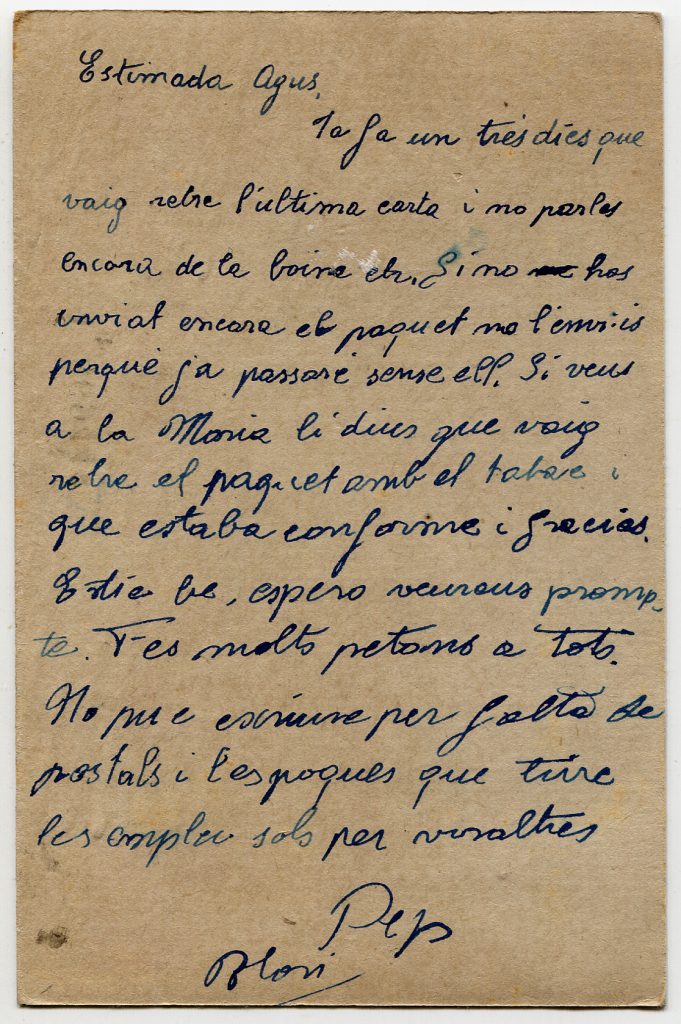 Estimada Agus,
Ja fa un tres dies que
vaig rebre l'ultima carta i no parles
encara de la boina etz. Si no has
enviat encara el paquet no l'enviis
perquè ja passaré sense ell. Si veus
a la Maria li dius que vaig
rebre el paquet amb el tabac i
que estaba conforme i gracies.
Estic be, espero veureus promp-
te. Fes molts petons a tots.
No puc escriure per falta de
postals i les poques que tinc
les empleu sols per vosaltres
Pep